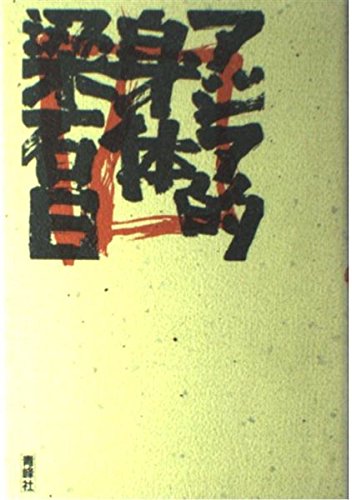 アジア的
身体
梁石日
青峰社